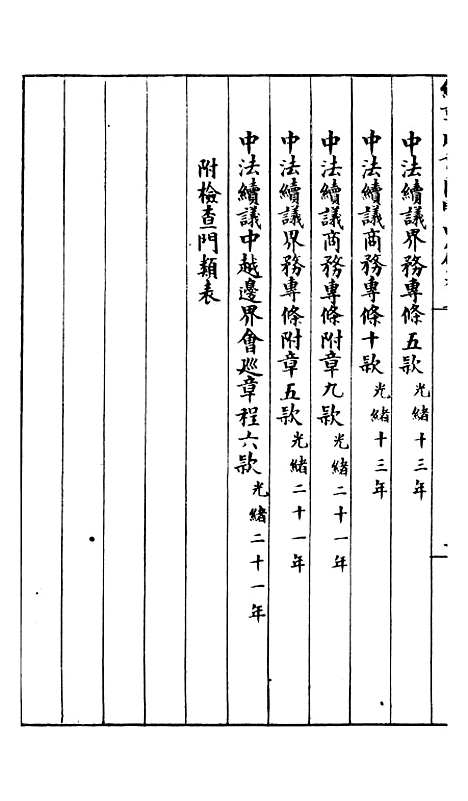 中法續議界務專條五款光緒十三年
中法續議商務專條十款光緒十三年
中法續議商務專條附章九款光緒二十一年
中法續議界務專條附章五款光緒二十一年
中法續議中越邊界會巡章程六款光緒二十一年
附檢查門類表